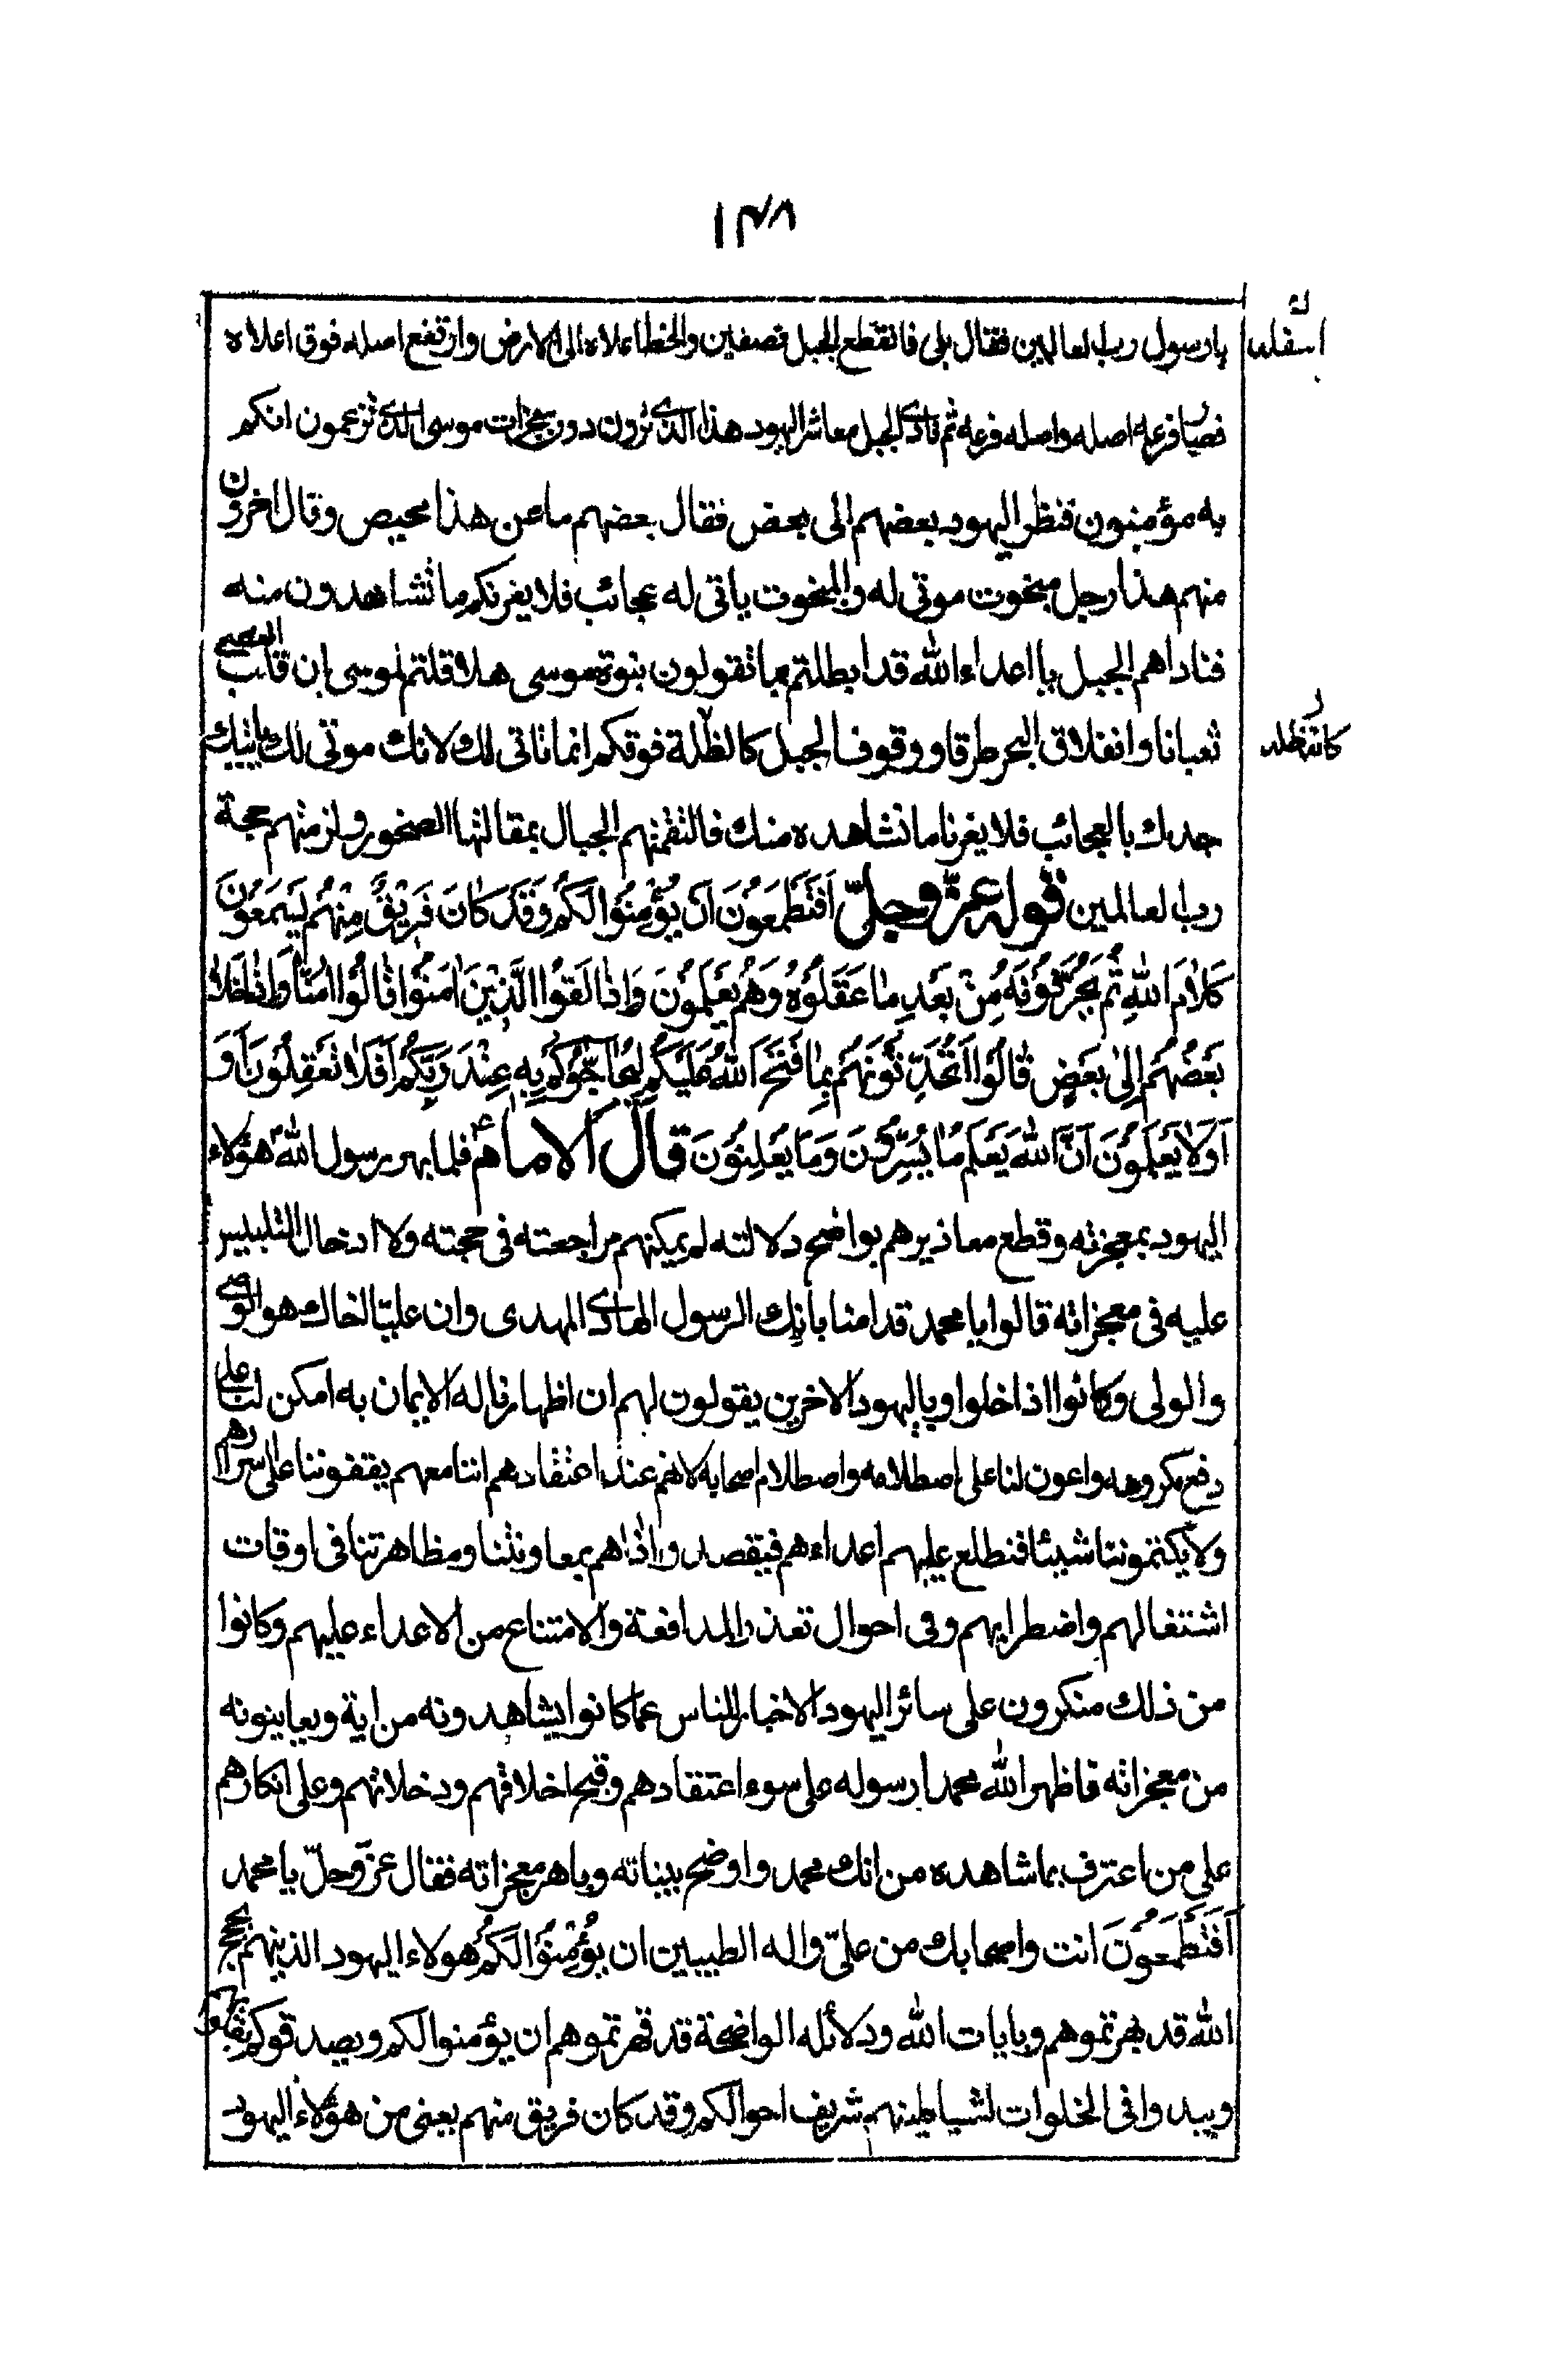 ١٤٨
يا رسول رب العالمين فقال بلى فانقطع الجبل نصفين وانحط اعلاه الى الارض وارتفع اصله فوق اعلاه
اسفله
فصار فرعه اصله واصله فرعه ثم نادى الجبل معاشر اليهود هذا الذى ترون دون معجزات موسى الذى تزعمون انكم
به مؤمنون فنظر اليهود بعضهم الى بعض فقال بعضهم ما عن هذا محيص وقال اخرون
منهم هذا رجل مبخوت موتى له والمبخوت ياتى له عجائب فلا يغرنكم ما تشاهدون منه
فناداهم الجبل يا اعداء الله قد ابطلتم بما تقولون نبوة موسى هلا قلتم لموسى ان قلب العصى
ثعبانا وانفلاق البحر طرقا ووقوف الجبل كالظلة فوقكم انما تاتى لك لانك موتى لك ياتيك
كالظلة
جدك بالعجائب فلا يغرنا ما نشاهده منك فالتقمتهم الجبال بمقالتها الصخور ولزمتهم حجة
رب العالمين قوله عز وجل اَفَتَطْمَعُونَ اَنْ يُؤْمِنُوا لَكُمْ وَقَدْ كَانَ فَرِيقٌ مِنْهُمْ يَسْمَعُونَ
كَلَامَ اللهِ ثُمَّ يُحَرِّفُونَهُ مِنْ بَعْدِ مَا عَقَلُوهُ وَهُمْ يَعْلَمُونَ وَاِذَا لَقُوا الَّذِينَ اٰمَنُوا قَالُوا اٰمَنَّا وَاِذَا خَلَا
بَعْضُهُمْ اِلٰى بَعْضٍ قَالُوا اَتُحَدِّثُونَهُمْ بِمَا فَتَحَ اللهُ عَلَيْكُمْ لِيُحَاجُّوكُمْ بِهِ عِنْدَ رَبِّكُمْ اَفَلَا تَعْقِلُونَ اَوَ
اَوَلَا يَعْلَمُونَ اَنَّ اللهَ يَعْلَمُ مَا يُسِرُّونَ وَمَا يُعْلِنُونَ قال الامام فلما بهر رسول الله هؤلاء
اليهود بمعجزته وقطع معاذيرهم بواضح دلالته لم يمكنهم مراجعته فى حجته ولا ادخال التلبيس
عليه فى معجزاته قالوا يا محمد قد امنا بانك الرسول الهادى المهدى وان عليّا اخاك هو الوصى
والولى وكانوا اذا خلوا وباليهود الاخرين يقولون لهم ان اظهارنا له الايمان به امكن لنا على
دفع مكروهه واعون لنا على اصطلامه واصطلام اصحابه لانهم عند اعتقادهم اننا معهم يقفوننا على اسرارهم
ولا يكتموننا شيئا فنطلع عليهم اعداءهم فيقصدوا اذاهم بمعاونتنا ومظاهرتنا فى اوقات
اشتغالهم واضطرابهم وفى احوال تعذر المدافعة والامتناع من الاعداء عليهم وكانوا
من ذلك منكرون على سائر اليهود الاخبار للناس عما كانوا يشاهدونه من اية ويعاينونه
من معجزاته فاظهر الله محمدا رسوله على سوء اعتقادهم وقبح اخلاقهم ودخلاتهم وعلى انكارهم
على من اعترف بما شاهده من انك محمد واوضح بيناته وباهر معجزاته فقال عزّ وجلّ يا محمد
اَفَتَطْمَعُونَ انت واصحابك من علىّ واله الطيبين ان يُؤْمِنُوا لَكُمْ هولاء اليهود الذينهم بحجج
الله قد بهرتموهم وبايات الله ودلائله الواضحة قد قهرتموهم ان يؤمنوا لكم ويصدقوكم بقلوبهم
ويبدوا فى الخلوات لشياطينهم شريف احوالكم وقد كان فريق منهم يعنى من هؤلاء اليهود